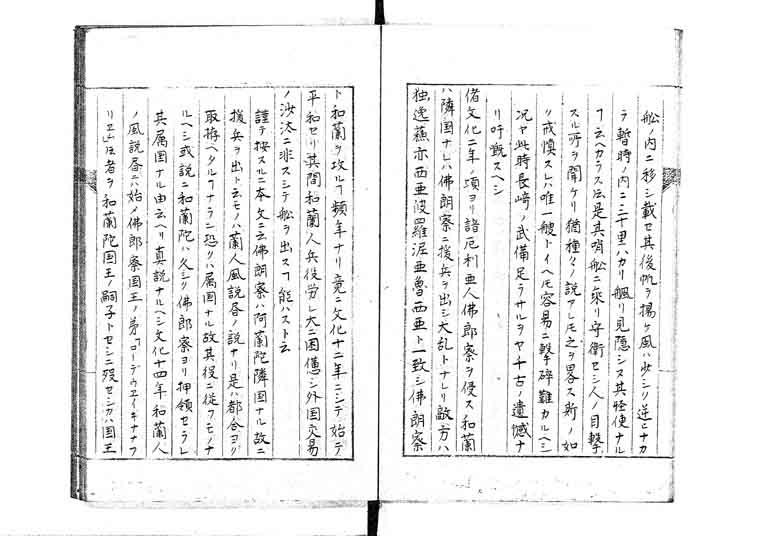 舩ノ内ニ移シ載セ其後帆ヲ揚ケ風ハ少シク逆ヒナカ
ラ暫時ノ内ニ三十里ハカリ颿リ見隠シヌ其怪使ナル
ヿ云ヘカラス法是其哨舩ニ乘リ守衛セシ人ノ目撃
スル所ヲ聞ケリ猶種々ノ説アレ𪜈之ヲ畧ス斯ノ如
ク戒慎スレハ唯一艘トイヘ𪜈容易ニ撃碎難カルヘシ
况ヤ此時長崎ノ武備足ラサルヲヤ千古ノ遺憾ナ
リ吁慨スヘシ
偖文化二年ノ頃ヨリ諳厄利亜人佛郎察ヲ侵ス和蘭
ハ隣国ナレハ佛朗察ニ援兵ヲ出シ大乱トナレリ敵方ハ
独逸蕉亦西亜波羅泥亜魯西亜ト一致シ佛朗察
ト和蘭ヲ攻ルヿ頻年ナリ竟ニ文化十二年ニシテ始テ
平和セリ其間和蘭人兵役労レ大ニ困憊シ外国交易
ノ沙汰ニ非スシテ舩ヲ出スヿ能ハスト云
謹テ按スルニ本文ニ云佛朗察ハ阿蘭陀隣国ナル故ニ
援兵ヲ出ト云モノハ蘭人風説昏ノ説ナリ是ハ都合ヨク
取拵ヘタルヿナラン恐クハ属国ナル故其役ニ従フモノナ
ルヘシ或説ニ和蘭陀ハ久シク佛郎察ヨリ押領セラレ
其属国ナル由云ヘリ真説ナルヘシ文化十四年和蘭人
ノ風説昏ニハ始メ佛郎察国王ノ弟「ローデウエイキナナフ
リヱ」ノ者ヲ和蘭陀国王ノ嗣子トセシニ歿セシカハ国王